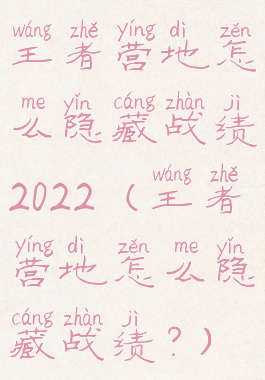 wáng zhě yíng dì zěn
王者营地怎
me yǐn cáng zhàn jì
么隐藏战绩
wáng zhě
2022（王者
yíng dì zěn me yǐn
营地怎么隐
cáng zhàn jì
藏战绩？）